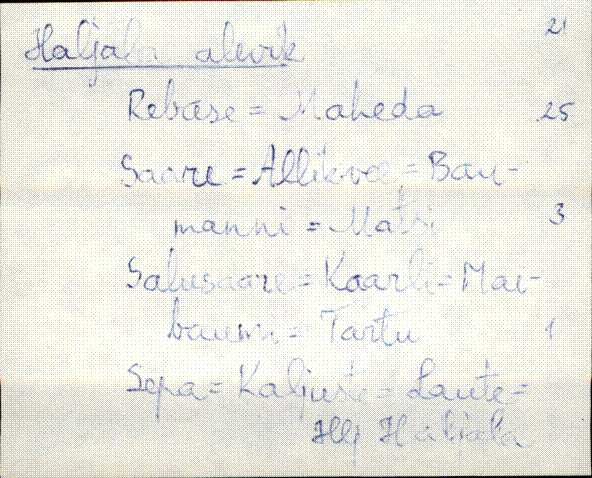 Haljala alevik 21
Rebase = Maheda 25
Saare = Allikvee = Bau-
manni = Matsi 3
Salusaare = Kaarli = Mai-
baumi = Tartu 1
Sepa = Kaljuste = Laute =
Hlj Haljala